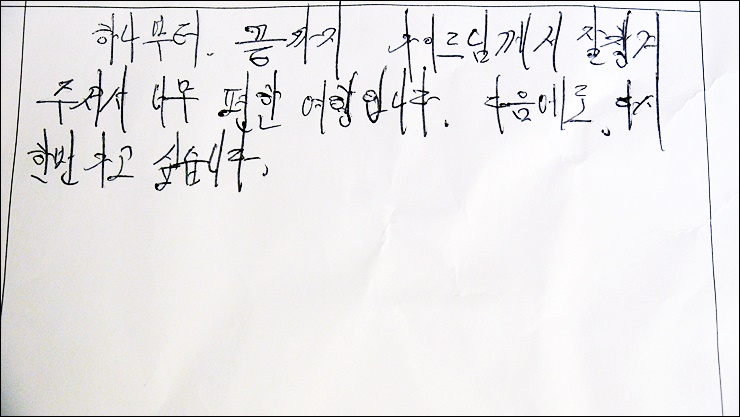 하나부터. 끝까지 가이드님께서 잘해
주셔서 너무 편한 여행입니다. 다음에도. 다시
한번 가고 싶습니다.